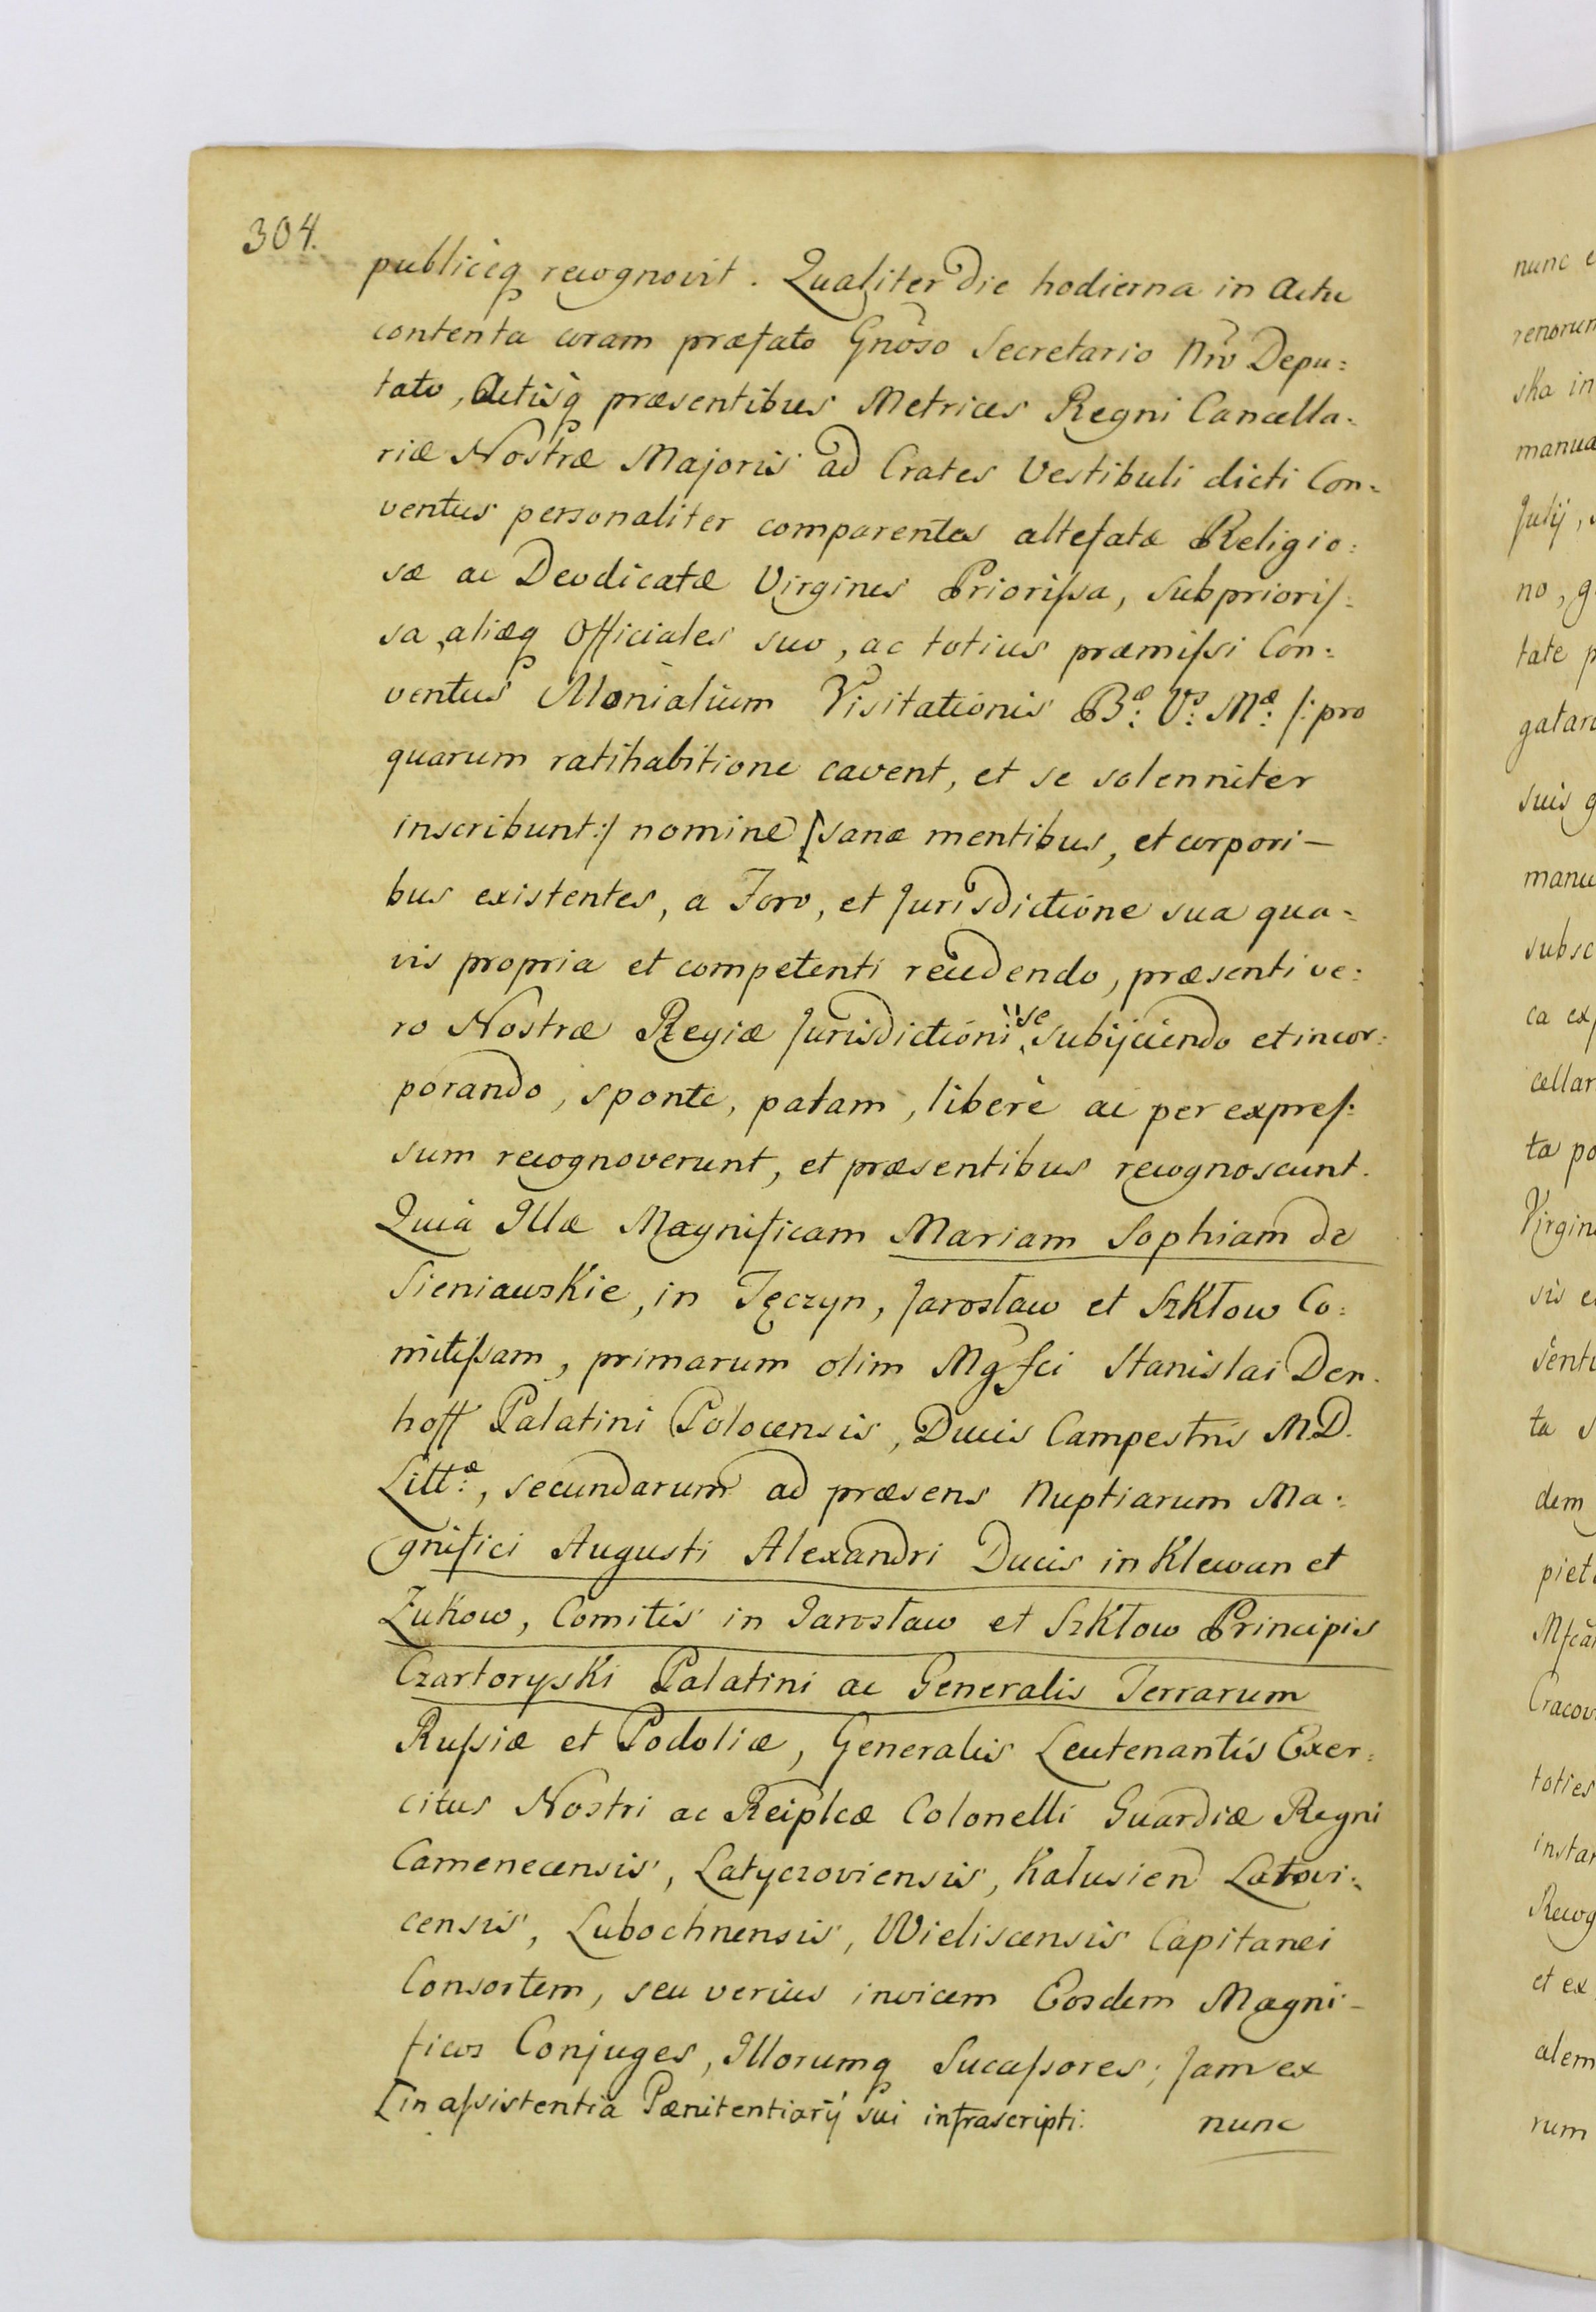 304.
publiceq recognovit. Qualiter die hodierna in Actu
contenta coram præfato Gnoso Secretario Nro Depu:
tato, Actisq præsentibus Metrices Regni Cancella:
riæ Nostræ Majoris ad Crates Vestibuli dicti Con:
ventus personaliter comparentes altefatæ Religio:
sæ ac Deodicatæ Virgines Priorissa, Subprioris:
sa, aliæq Officiales suo, ac totius præmissi Con:
ventus Monialium Visitationis Bæ: Vs: Mæ: /: pro
quarum ratihabitione cavent, et se solenniter
inscribunt :/ nomine [sanæ mentibus, et corpori-
bus existentes, a Foro, et Jurisdictione sua qua:
vis propria et competenti recedendo, præsenti ve:
ro Nostræ Regiæ Jurisdictioni se subijciendo et incor:
porando, sponte, palam, liberè ac per expres:
sum recognoverunt, et præsentibus recognoscunt.
Quia Illæ Magnificam Mariam Sophiam de
Sieniawskie, in Tęczyn, Jarosław et Szkłow Co:
mitissam, primarum olim Mgfci Stanislai Den:
hoff Palatini Polocensis, Ducis Campestris M.D.
Littæ:, secundarum ad præsens Nuptiarum Ma:
gnifici Augusti Alexandri Ducis in Klewan et
Żukow, Comitis in Jarosław et Szkłow Principis
Czartoryski Palatini ac Generalis Terrarum
Russiæ et Podoliæ, Generalis Leutenantis Exer:
citus Nostri ac Reiplcæ Colonelli Guardiæ Regni
Camenecensis, Latyczoviensis, Kalusien Latovi:
censis, Lubochnensis, Wieliscensis Capitanei
Consortem, seu verius invicem Eosdem Magni-
ficos Conjuges, Illorumq Sucessores; Jam ex
[in assistentia Pænitentiarij sui infrascripti.
nunc